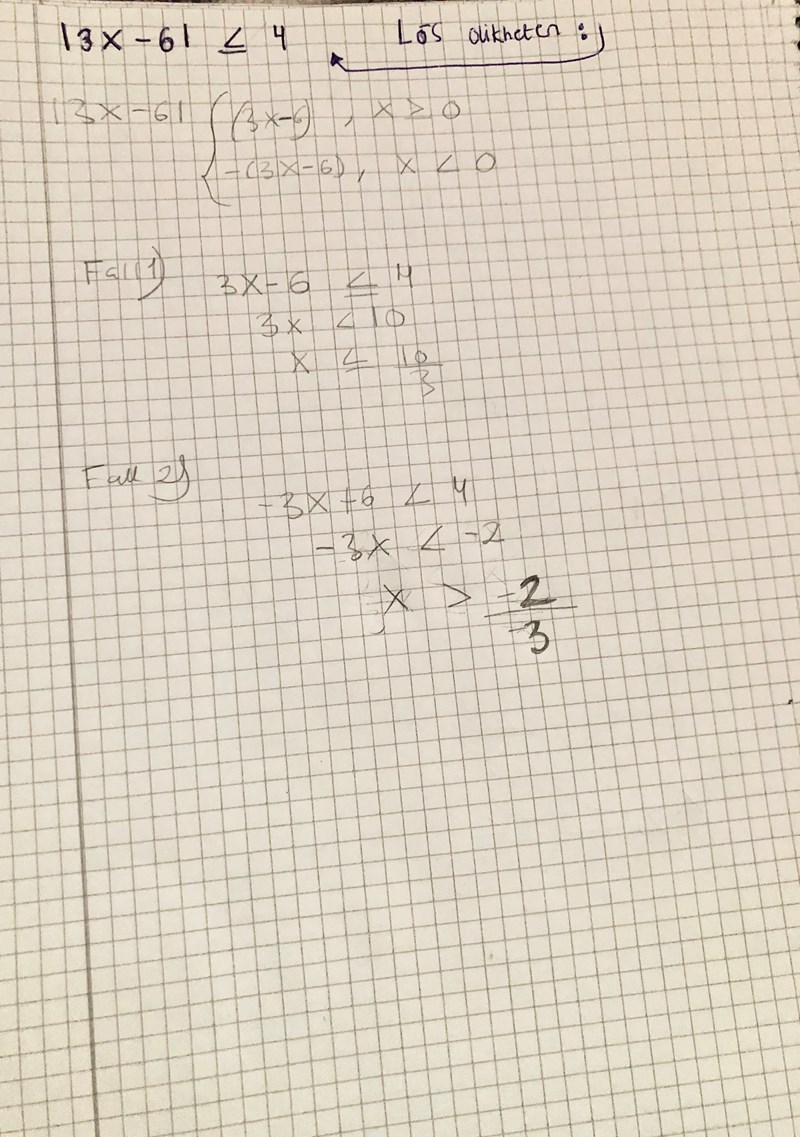 |3x-6| ≤ 4 Lös olikheten :
|3x-6| { (3x-6), x ≥ 0
-(3x-6), x < 0
Fall 1) 3x-6 ≤ 4
3x < 10
x ≤ 10/3
Fall 2) -3x+6 < 4
-3x < -2
x > -2/-3